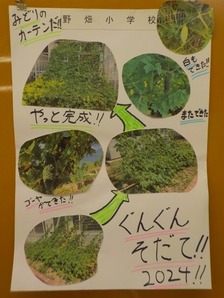 みどりの
カーテンだ!!
野畑小学校
白も
できた!!
またできた
やっと完成!!
ゴーヤができた!!
ぐんぐん
そだて!!
2024!!